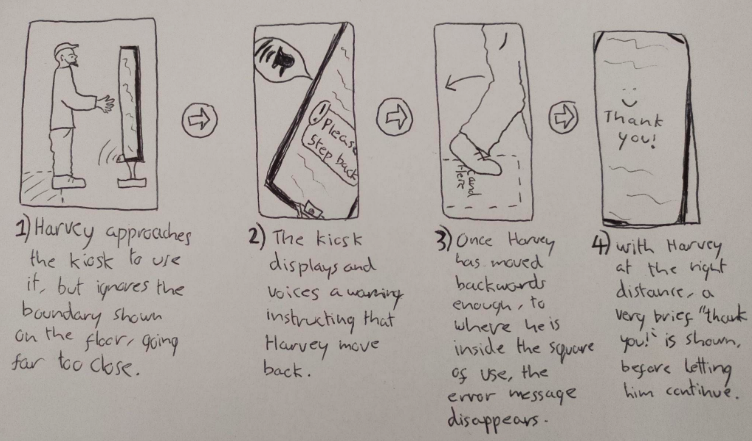 ! Please
step back
Stand
Here
Thank
you!
1) Harvey approaches
the kiosk to use
it, but ignores the
boundary shown
on the floor, going
far too close.
2) The kiosk
displays and
voices a warning
instructing that
Harvey move
back.
3) Once Harvey
has moved
backwards
enough, to
where he is
inside the square
of use, the
error message
disappears.
4) with Harvey
at the right
distance, a
very brief "thank
you!" is shown,
before letting
him continue.